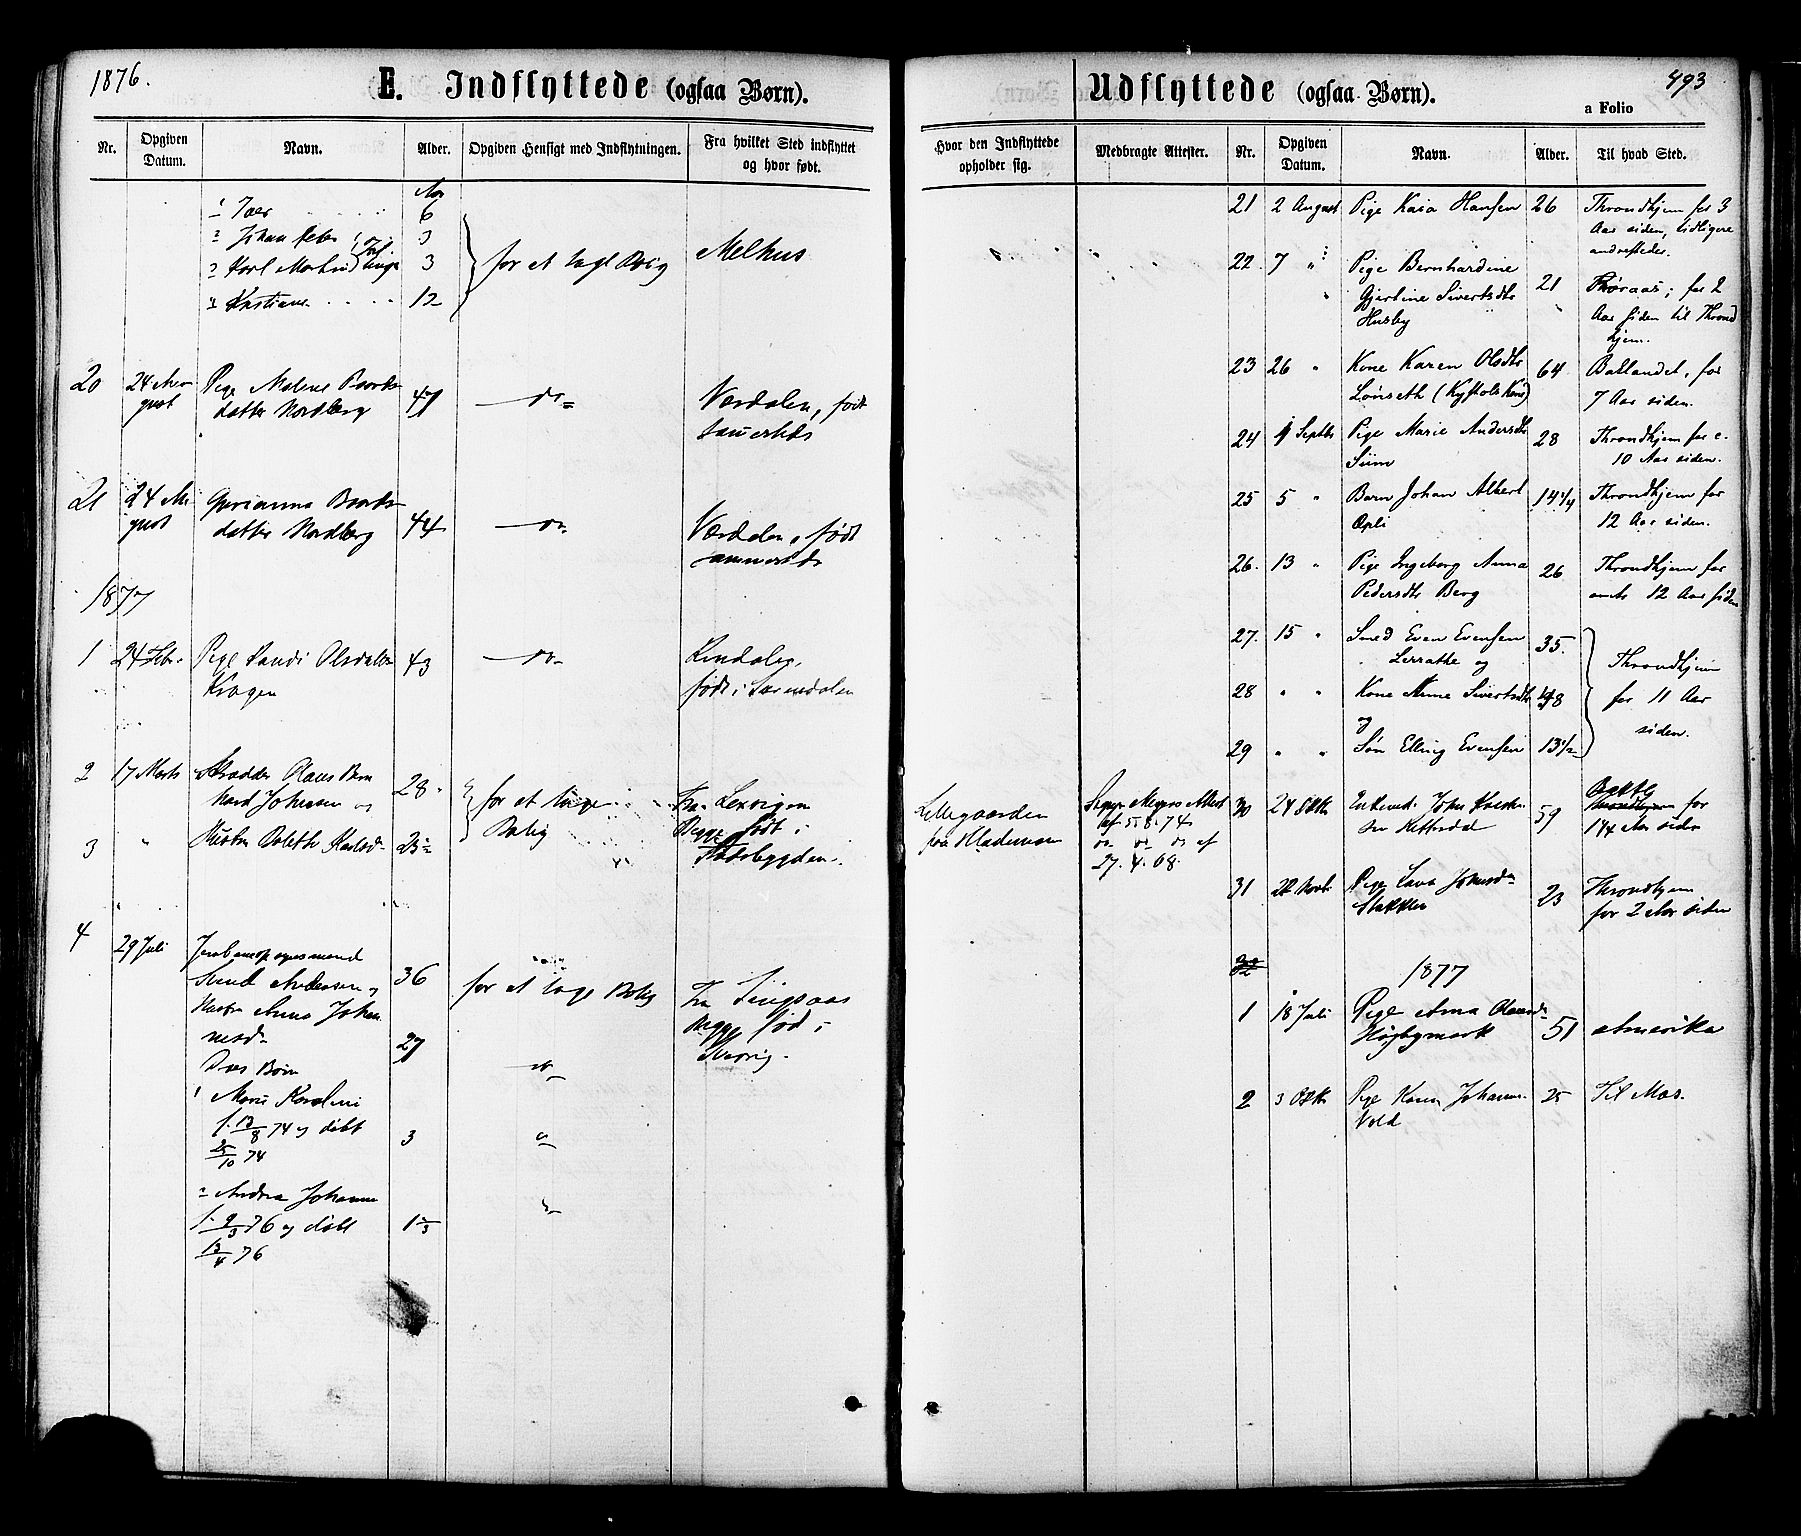 1876.
E. Indflyttede (ogsaa Børn).
Nr.
Opgiven Datum.
Navn.
Alder.
Opgiven Hensigt med Indflytningen.
Fra hvilket Sted indflyttet og hvor født.
Aar
1 Iver 6
2 Johan Peter 3
3 Karl Martin 3
Kristiane 12
for at tage Bolig
Melhus
20 24 August Pige Malene Baards- 47 do Værdalen, født
datter Nordberg
21 24 August Baards- 44 do Værdalen, født
datter Nordberg
1877
1 24 Febr. Pige Randi Olsdatter 43 do Rindalen,
født i Surendalen
2 17 Marts Skrædder Olaus Bern 28 for at tage Fra Lexvigen
hard Johnsen og Bolig Begge født i
3 " Hustru 23 Stadsbygden.
4 29 Juli Jernbaneopsynsmand
Andersen og 36 for at tage Bolig Fra Singsaas
Hustru Anna Johan begge født i
nesd. 27
Deres Børn do
1 Marie Karoline
f. 12/8 74 og døbt 3
25/10 74
2 Andrea Johanne
f. 9/3 76 og døbt 1 1/3
13/4 76
Udflyttede (ogsaa Børn).
493
a Folio
Hvor den Indflyttede opholder sig.
Medbragte Attester.
Nr.
Opgiven Datum.
Navn.
Alder.
Til hvad Sted.
21 2 August Pige Kaia Hansen 26 Throndhjem for 3
Aar siden, tidligere
andrestedes.
22. 7 " Pige Bernhardine
Gjertine Sivertsdtr 21 Røraas; for 2
Husby Aar siden til Thrond
hjem.
23 26 " Kone Karen Olsdtr 64 Ballandet, for
Lønseth 7 Aar siden.
24 4 Septbr Pige Marie Andersdtr 28 Throndhjem for c.
Siim 10 Aar siden.
25 5 " Barn Johan Albert 14 1/4 Throndhjem for
Øpli 12 Aar siden.
26. 13 " Pige Ingeborg Anna 26 Throndhjem for
Pedersdtr Berg omtr 12 Aar siden
27. 15 " Smed Even Evensen 35.
og
Throndhjem
28 " " Kone Anne Sivertsdtr 48 for 11 Aar
og siden.
29 " " Søn Elling Evensen 13 1/2
Lillegaarden
paa Hlademoen
Attest
af 5.8.74
do do do af
27.4.68.
30 24 Oktbr Enkemd. John 59 Throndhjem for
14 Aar siden
31 22 Novbr Pige 23 Throndhjem
for 2 Aar siden
32
1877
1 18 Juli Pige Anna Olausd.
Højbymark 51 Amerika
2 3 Oktbr Pige Karen Johanns. 25 Til Mos.
Vold